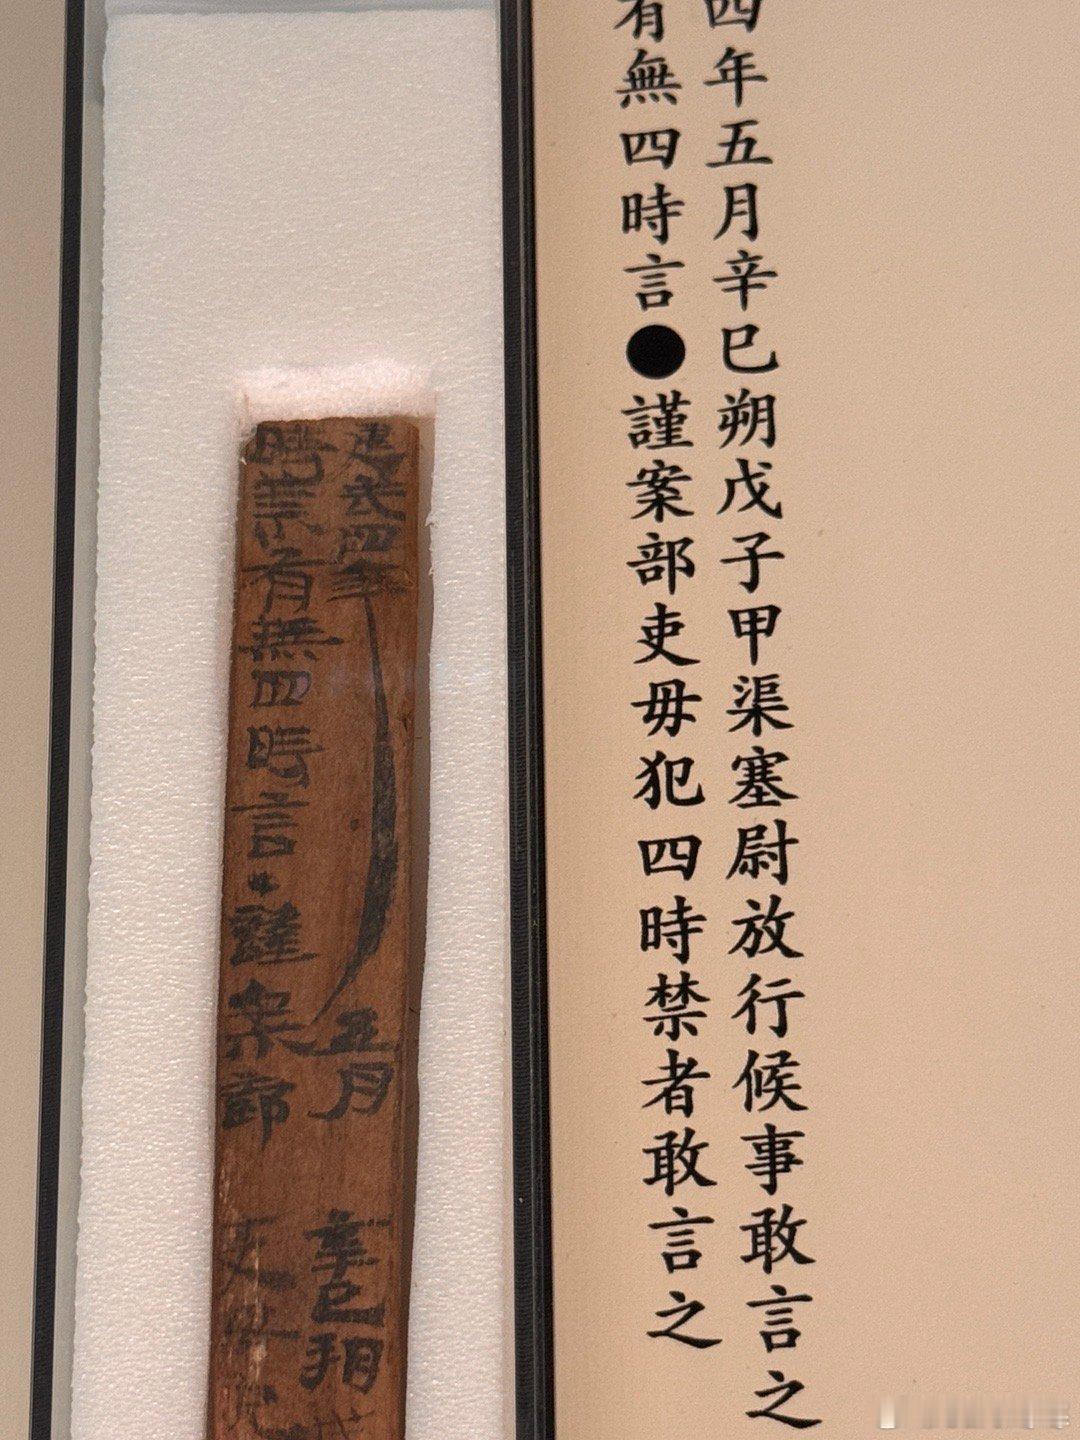 四年五月辛巳朔戊子甲渠塞尉放行候事敢言之
有無四時言●謹案部吏毋犯四時禁者敢言之
建武四年五月辛巳朔
時禁有無四時言·謹案部吏毋犯